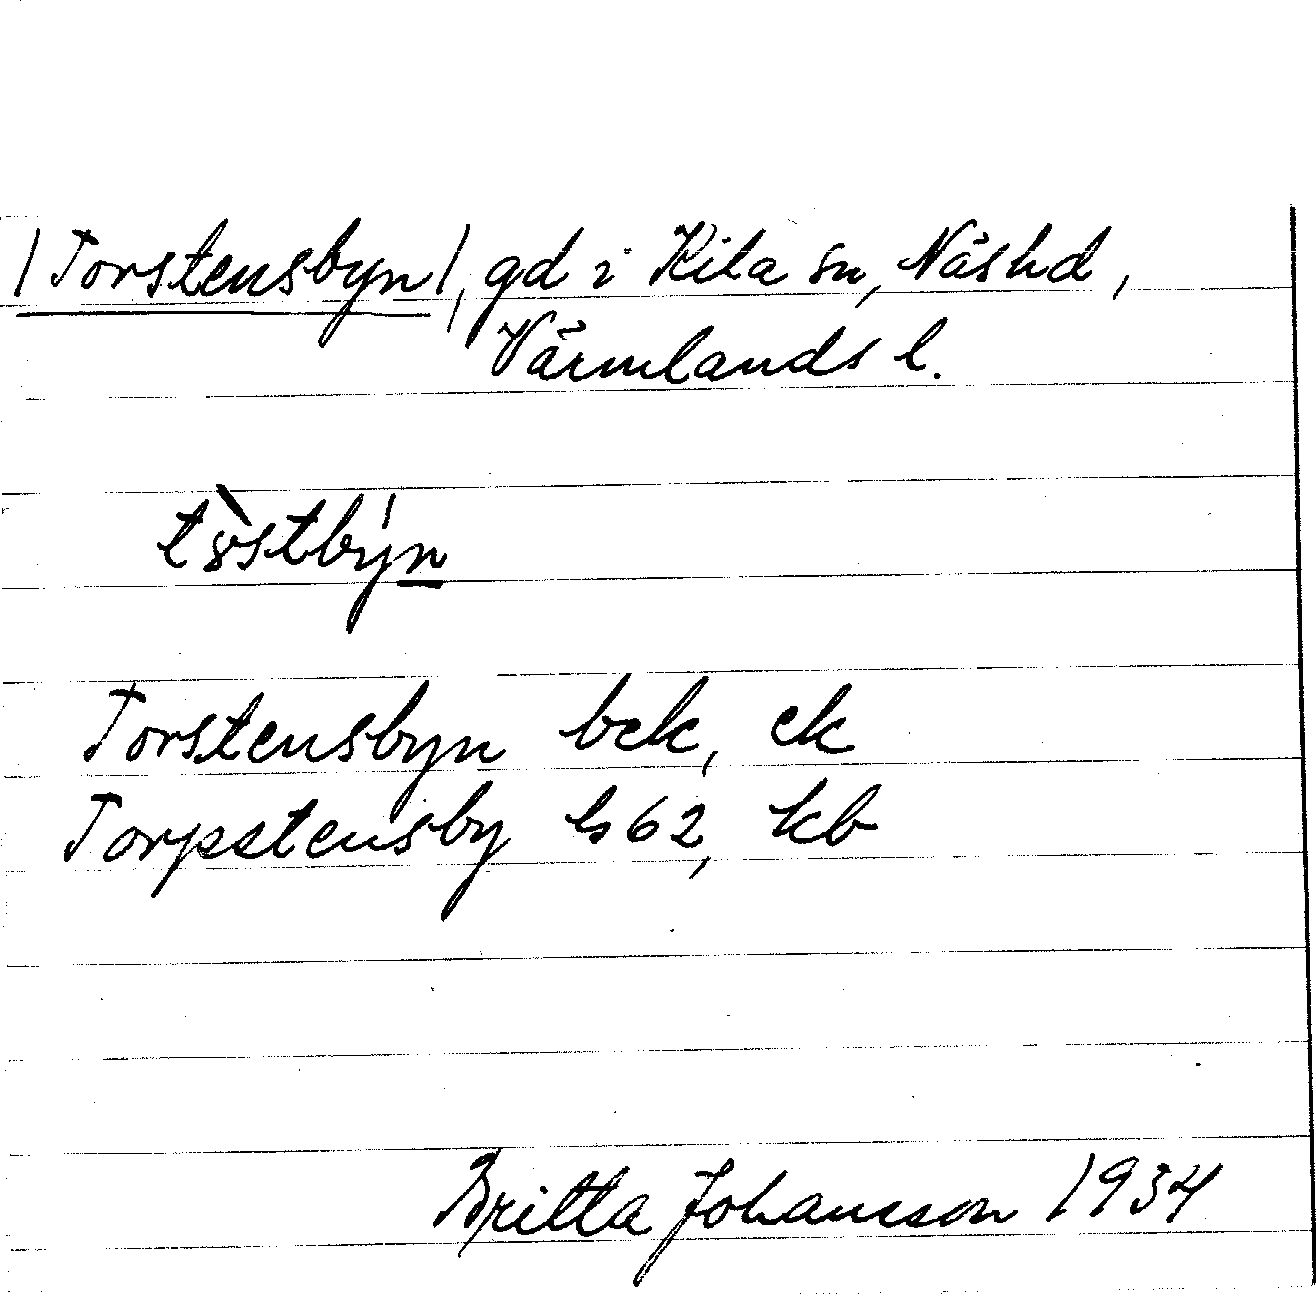 /Torstensbyn/, gd i Kila sn, Näs hd,
Värmlands l.
Torstensbyn bek, ek
Torpstensby ls 62, kb
Britta Johansson 1934